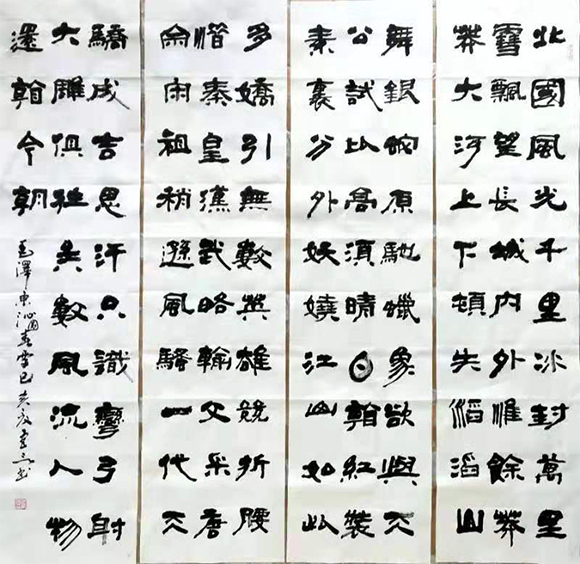 北國風光千里冰封萬里
雪飄望長城內外惟餘莽
莽大河上下頓失滔滔山
舞銀蛇原馳蠟象欲與天
公試比高須晴日看紅裝
素裹分外妖嬈江山如此
多嬌引無數英雄競折腰
惜秦皇漢武略輸文采唐
宗宋祖稍遜風騷一代天
驕成吉思汗只識彎弓射
大雕俱往矣數風流人物
還看今朝
毛澤東沁園春雪己亥